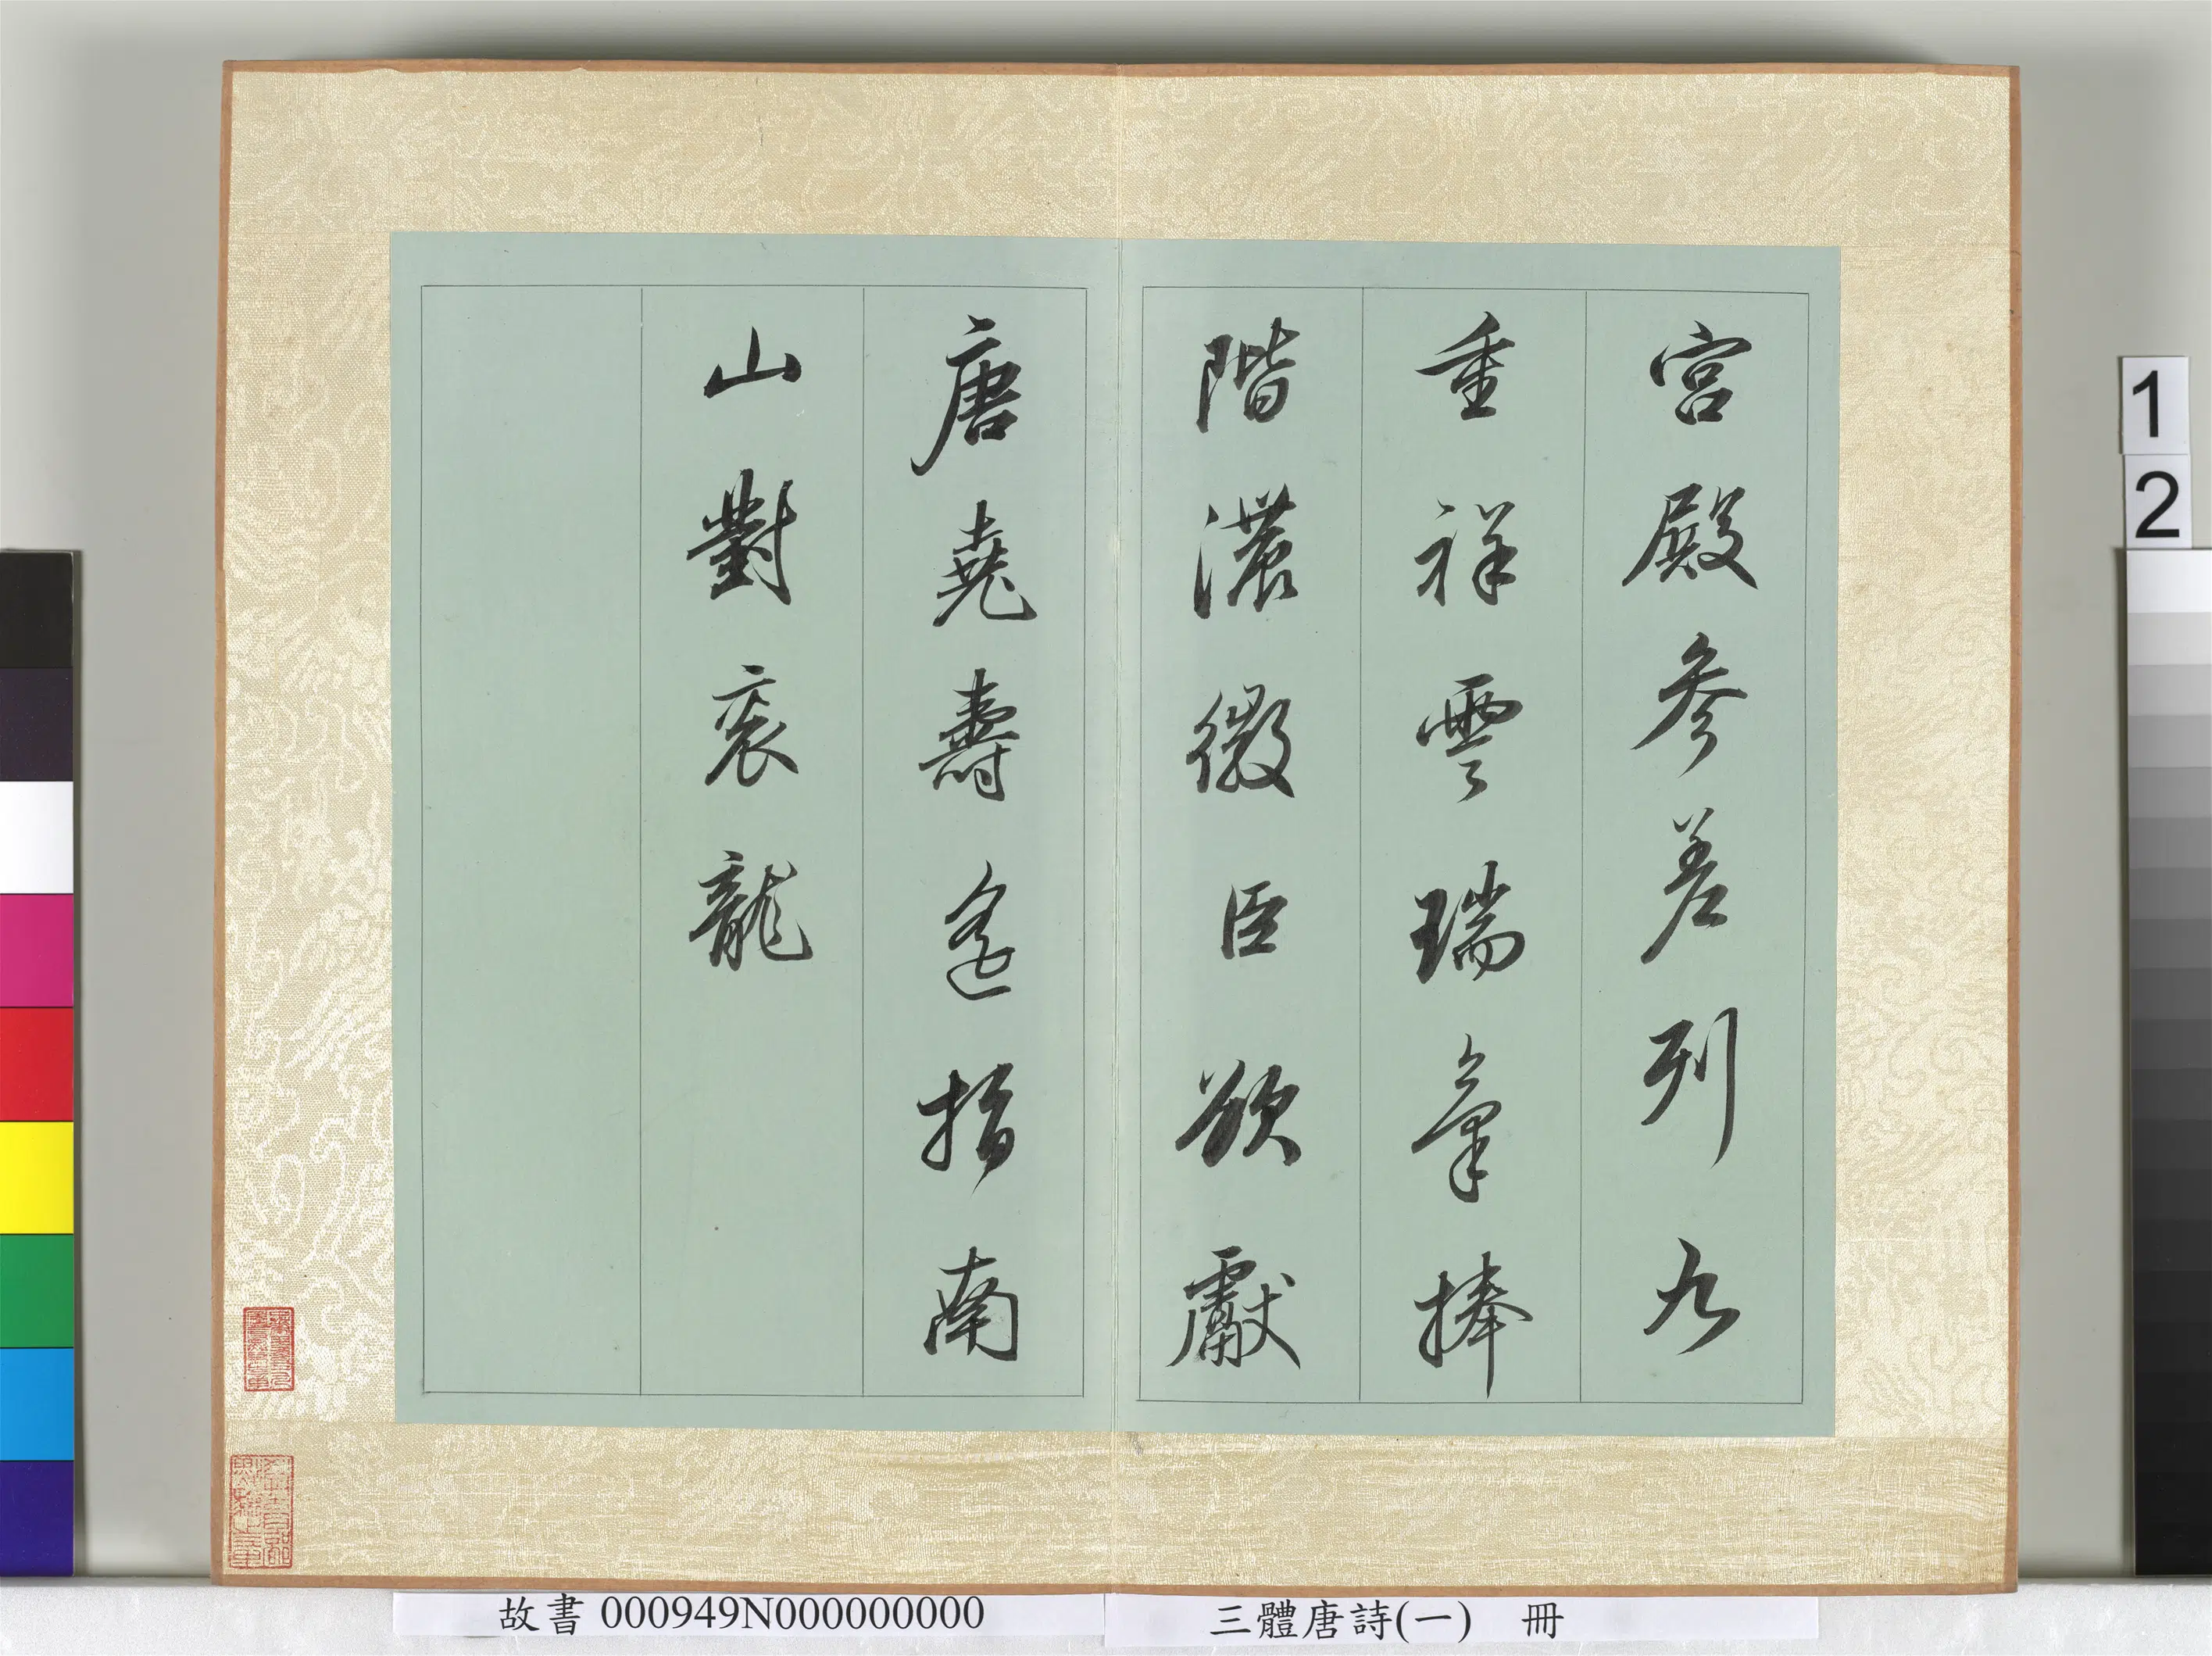 宮殿參差列九
重祥雲瑞氣捧
階濃微臣欲獻
唐堯壽遙指南
山對袞龍
故書 000949N000000000
三體唐詩(一) 冊
1
2